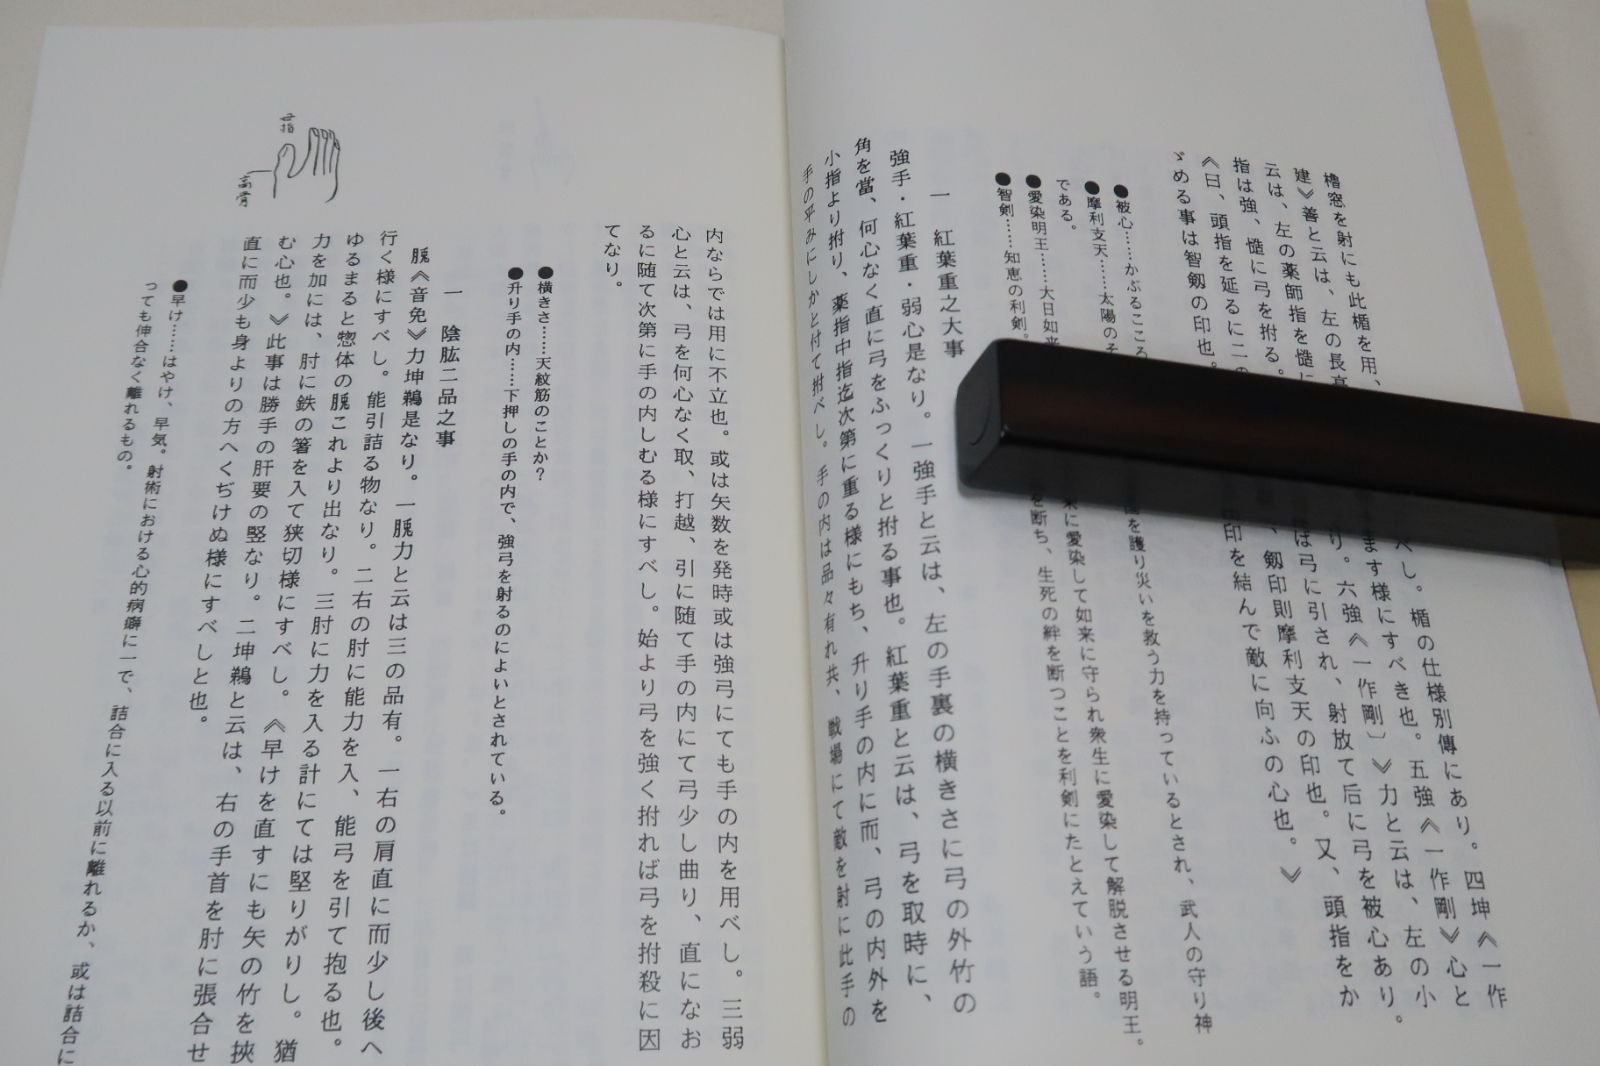 櫓窓を射にも此楯を用、
べし。楯の仕様別傳にあり。四坤《一作
建》善と云は、左の長高
ます様にすべき也。五強《一作剛》心と
云は、左の薬師指を
り。六強《一作剛〕》力と云は、左の小
指は強、慥に弓を拊る。
ば弓に引され、射放て后に弓を被心あり。
《曰、頭指を延るに二の
、剱印則摩利支天の印也。又、頭指をか
ゞめる事は智剱の印也。
印を結んで敵に向ふの心也。》
●被心……かぶるこころ
●摩利支天……太陽の
を護り災いを救う力を持っているとされ、武人の守り神
である。
●愛染明王……大日如来
に愛染して如来に守られ衆生に愛染して解脱させる明王。
●智剣……知恵の利剣。
を断ち、生死の絆を断つことを利剣にたとえていう語。
一　紅葉重之大事
強手・紅葉重・弱心是なり。一強手と云は、左の手裏の横きさに弓の外竹の
角を當、何心なく直に弓をふっくりと拊る事也。紅葉重と云は、弓を取時に、
小指より拊り、薬指中指迄次第に重る様にもち、升り手の内に而、弓の内外を
手の平みにしかと付て拊べし。手の内は品々有れ共、戦場にて敵を射に此手の
内ならでは用に不立也。或は矢数を発時或は強弓にても手の内を用べし。三弱
心と云は、弓を何心なく取、打越、引に随て手の内にて弓少し曲り、直になお
るに随て次第に手の内しむる様にすべし。始より弓を強く拊れば弓を拊殺に因
てなり。
●横きさ……天紋筋のことか？
●升り手の内……下押しの手の内で、強弓を射るのによいとされている。
一　陰肱二品之事
《音免》力坤鵜是なり。一力と云は三の品有。一右の肩直に而少し後へ
行く様にすべし。能引詰る物なり。二右の肘に能力を入、能弓を引て抱る也。
ゆるまると惣体のこれより出なり。三肘に力を入る計にては堅りがりし。猶
力を加には、肘に鉄の箸を入て狭切様にすべし。《早けを直すにも矢の竹を挾
む心也。》此事は勝手の肝要の竪なり。二坤鵜と云は、右の手首を肘に張合せ
直に而少も身よりの方へくぢけぬ様にすべしと也。
母指
高骨
●早け……はやけ、早気。射術における心的病癖に一で、詰合に入る以前に離れるか、或は詰合に
っても伸合なく離れるもの。